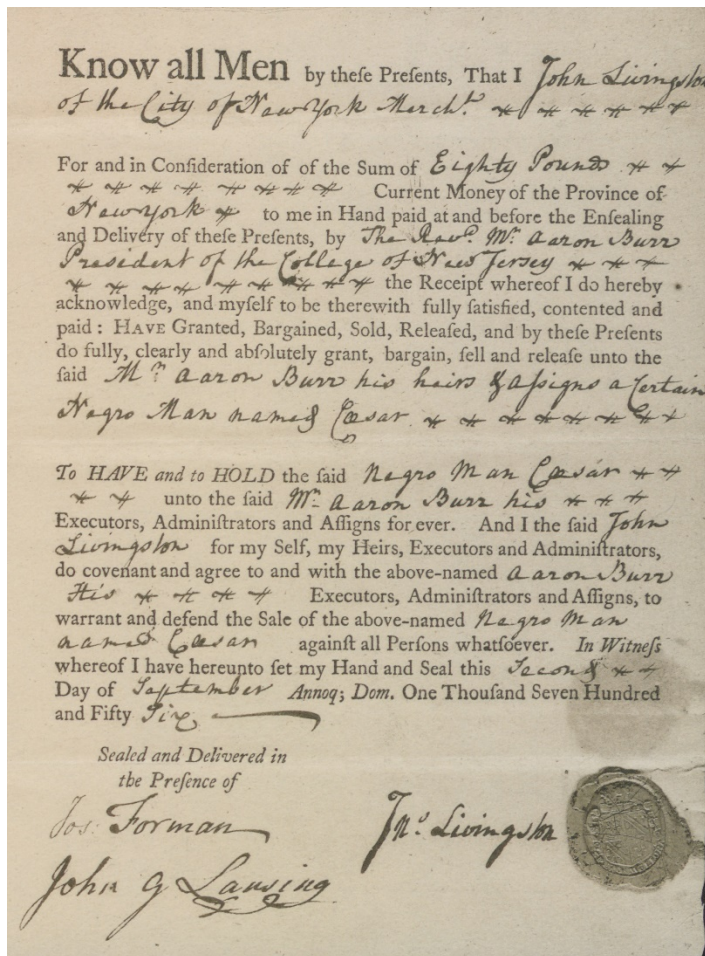 Know all Men by theſe Preſents, That I John Livingston
of the City of New York Mercht.
For and in Conſideration of of the Sum of Eighty Pounds
Current Money of the Province of
New York to me in Hand paid at and before the Enſealing
and Delivery of theſe Preſents, by The Revd. Mr. Aaron Burr
President of the College of New Jersey
the Receipt whereof I do hereby
acknowledge, and myſelf to be therewith fully ſatisfied, contented and
paid : HAVE Granted, Bargained, Sold, Releaſed, and by theſe Preſents
do fully, clearly and abſolutely grant, bargain, ſell and releaſe unto the
ſaid Mr. Aaron Burr his heirs & aſsigns a Certain
Negro Man named Cæsar
To HAVE and to HOLD the ſaid Negro Man Cæsar
unto the ſaid Mr. Aaron Burr his
Executors, Adminiſtrators and Aſſigns for ever. And I the ſaid John
Livingston for my Self, my Heirs, Executors and Adminiſtrators,
do covenant and agree to and with the above-named Aaron Burr
His Executors, Adminiſtrators and Aſſigns, to
warrant and defend the Sale of the above-named Negro Man
named Cæsar againſt all Perſons whatſoever. In Witneſs
whereof I have hereunto ſet my Hand and Seal this Second
Day of September Annoq; Dom. One Thouſand Seven Hundred
and Fifty Six
Sealed and Delivered in
the Preſence of
Jos: Forman
Jno. Livingston
John G Lansing